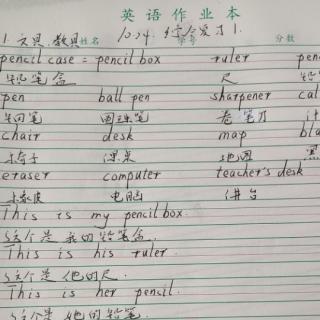 英语作业本
1. 文具、教具 姓名 10.24. 学号 分数
pencil case = pencil box ruler pen
铅笔盒 尺
pen ball pen sharpener
钢笔 圆珠笔 卷笔刀
chair desk map bla
椅子 课桌 地图 黑
eraser computer teacher's desk
橡皮 电脑 讲台
This is my pencil box.
这个是我的铅笔盒.
This is his ruler.
这个是他的尺.
This is her pencil.
这个是她的铅笔.